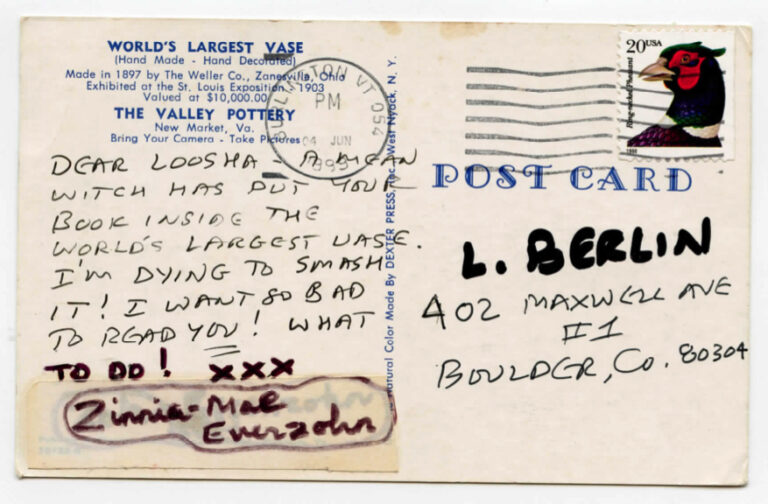 WORLD'S LARGEST VASE
(Hand Made - Hand Decorated)
Made in 1897 by The Weller Co., Zanesville, Ohio
Exhibited at the St. Louis Exposition, 1903
Valued at $10,000.00
THE VALLEY POTTERY
New Market, Va.
Bring Your Camera - Take Pictures
DEAR LOOSHA, A MEAN
WITCH HAS PUT YOUR
BOOK INSIDE THE
WORLD'S LARGEST VASE.
I'M DYING TO SMASH
IT! I WANT SO BAD
TO READ YOU! WHAT
TO DO! XXX
Zinnia-Mae
Everzohn
Natural Color Made By DEXTER PRESS, Inc. West Nyack, N. Y.
BURLINGTON VT 054
PM
04 JUN
20USA
POST CARD
L. BERLIN
402 MAXWELL AVE
#1
BOULDER, CO. 80304